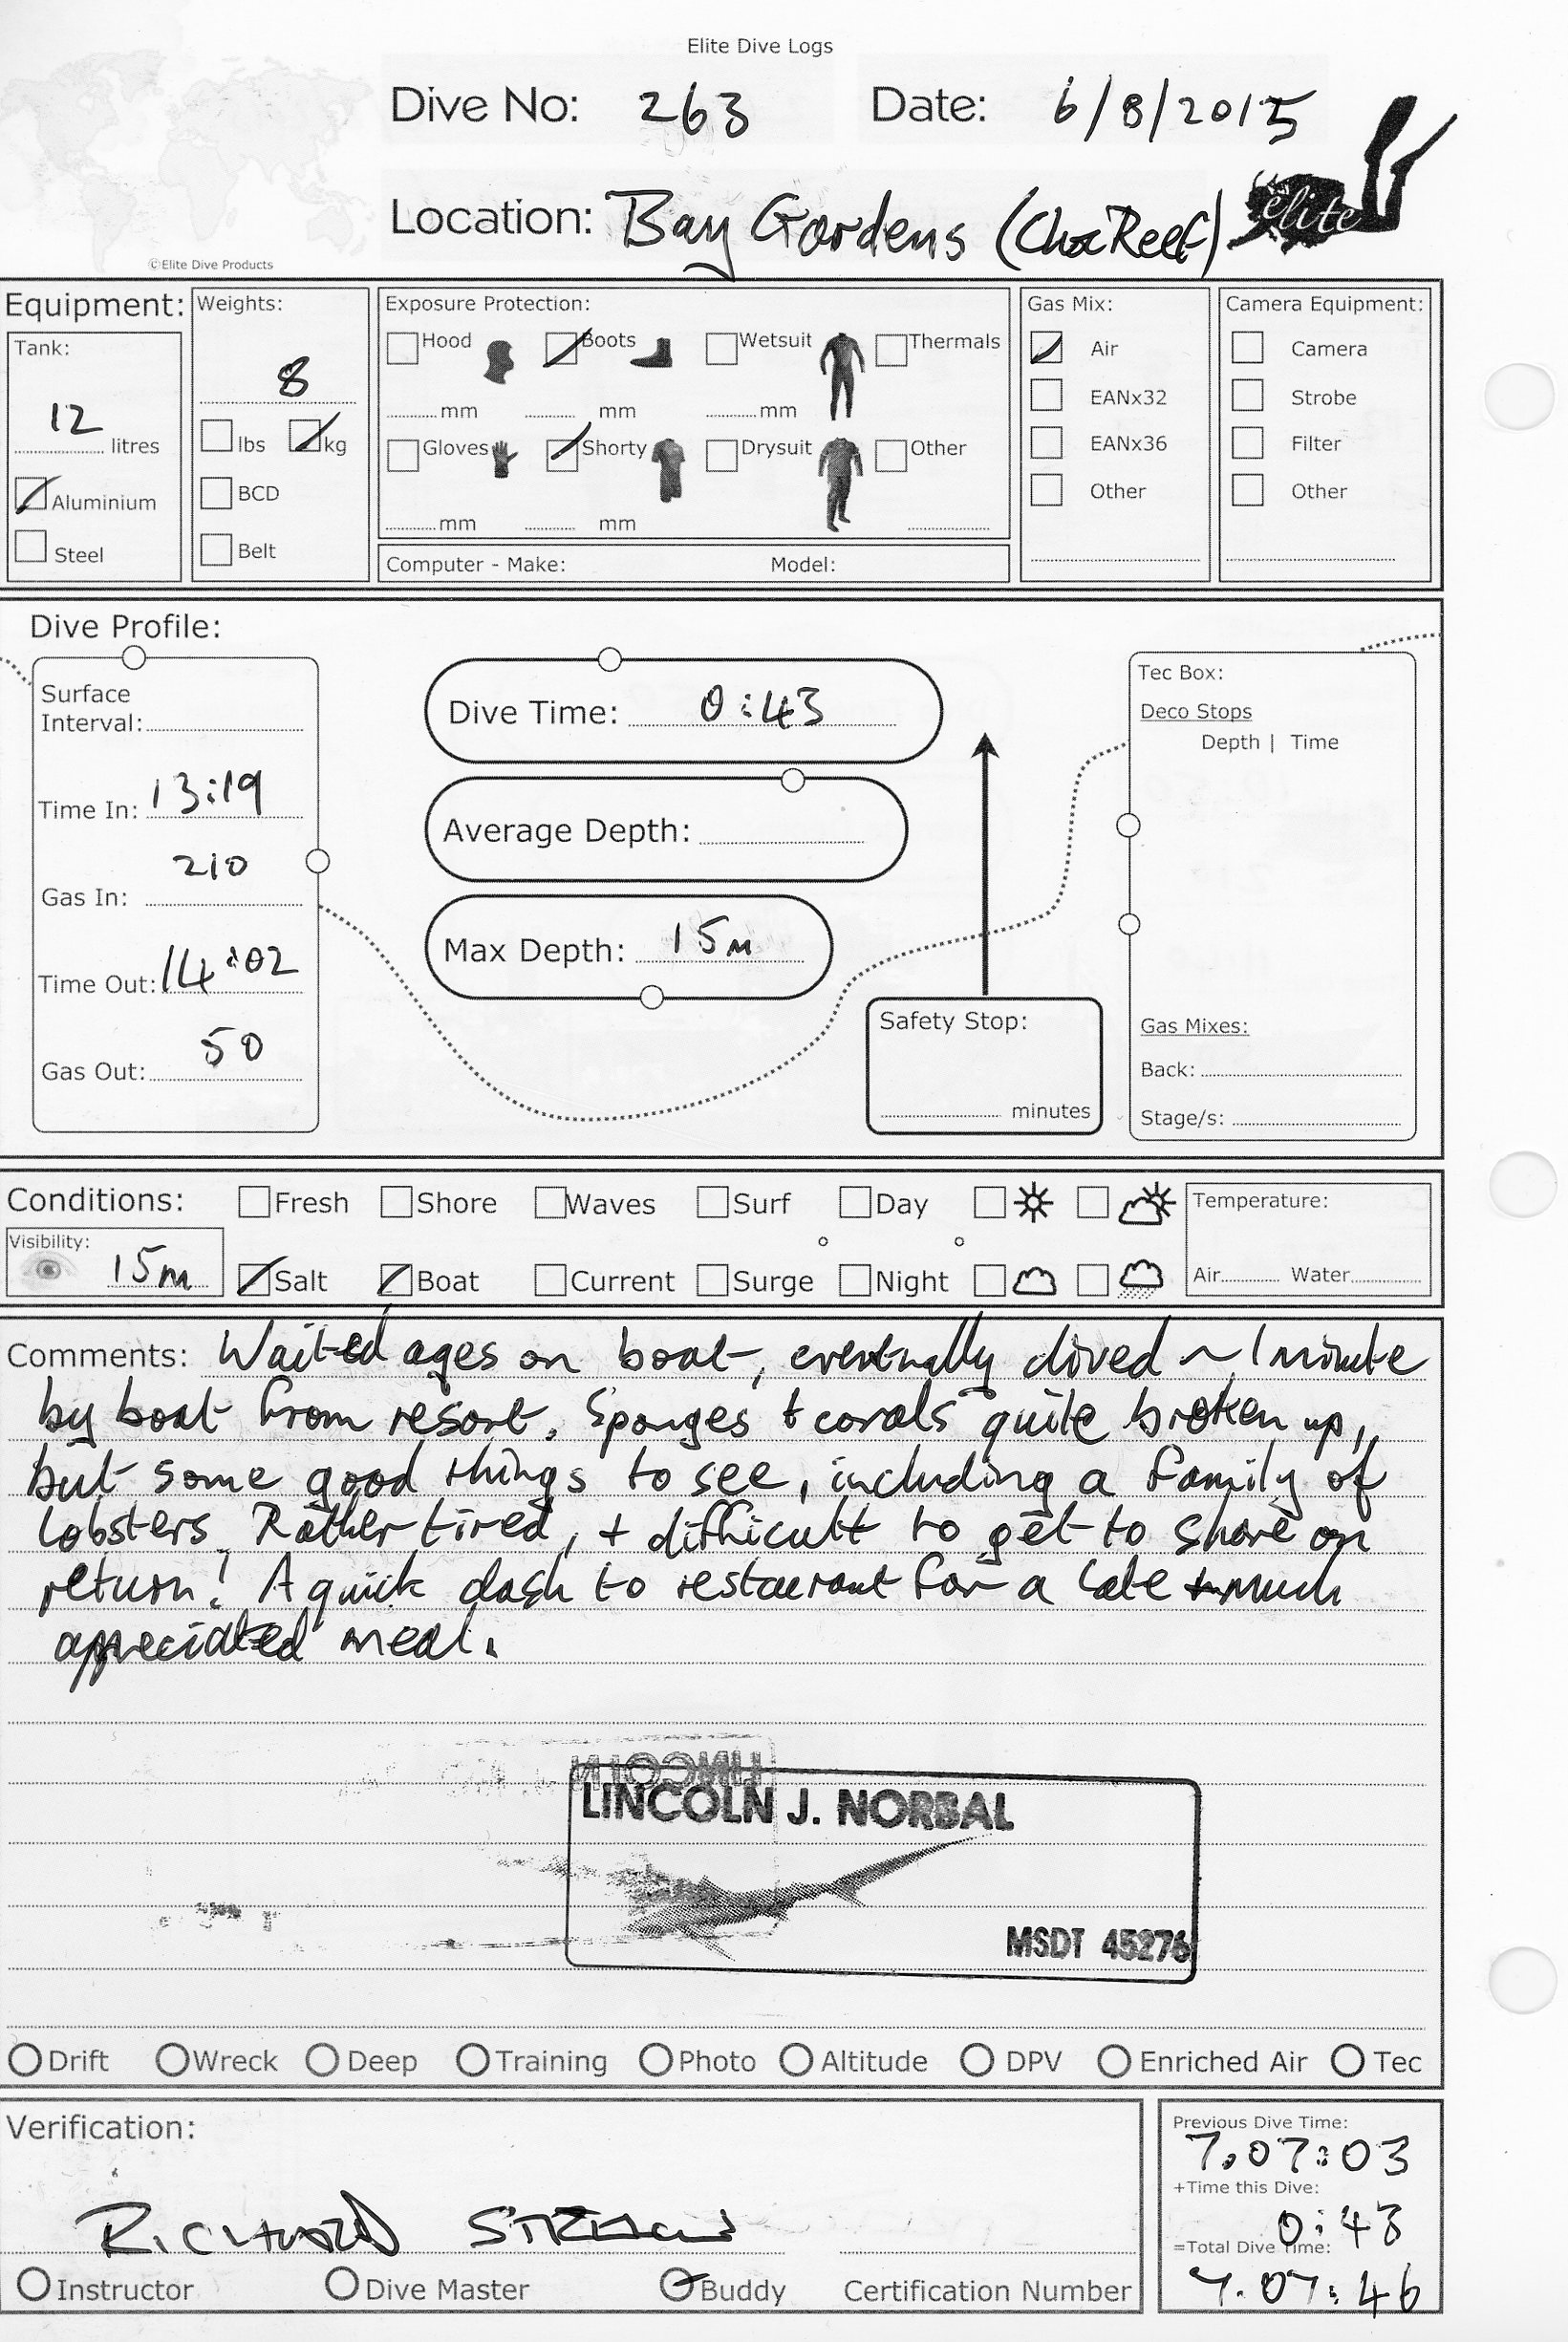 Elite Dive Logs
Dive No: 263 Date: 6/8/2015
Location: Bay Gardens (ChocReef)
elite
©Elite Dive Products
Equipment: Weights: Exposure Protection: Gas Mix: Camera Equipment:
Tank: 8 Hood Boots Wetsuit Thermals Air Camera
12 litres lbs kg mm mm mm EANx32 Strobe
Gloves Shorty Drysuit Other EANx36 Filter
Aluminium BCD Other Other
Steel Belt mm mm
Computer - Make: Model:
Dive Profile:
Surface
Interval:
Time In: 13:19
Gas In: 210
Time Out: 14:02
Gas Out: 50
Dive Time: 0:43
Average Depth:
Max Depth: 15m
Safety Stop:
minutes
Tec Box:
Deco Stops
Depth | Time
Gas Mixes:
Back:
Stage/s:
Conditions: Fresh Shore Waves Surf Day Temperature:
Visibility: 15m Salt Boat Current Surge Night Air Water
Comments: Waited ages on boat, eventually dived ~1 minute
by boat from resort. Sponges + corals quite broken up,
but some good things to see, including a family of
lobsters. Rather tired, + difficult to get to shore on
return! A quick dash to restaurant for a late + much
appreciated meal.
LINCOLN J. NORBAL
MSDT 45276
Drift Wreck Deep Training Photo Altitude DPV Enriched Air Tec
Verification:
RICHARD
Instructor Dive Master Buddy Certification Number
Previous Dive Time:
7.07:03
+Time this Dive:
0:43
=Total Dive Time:
7.07:46